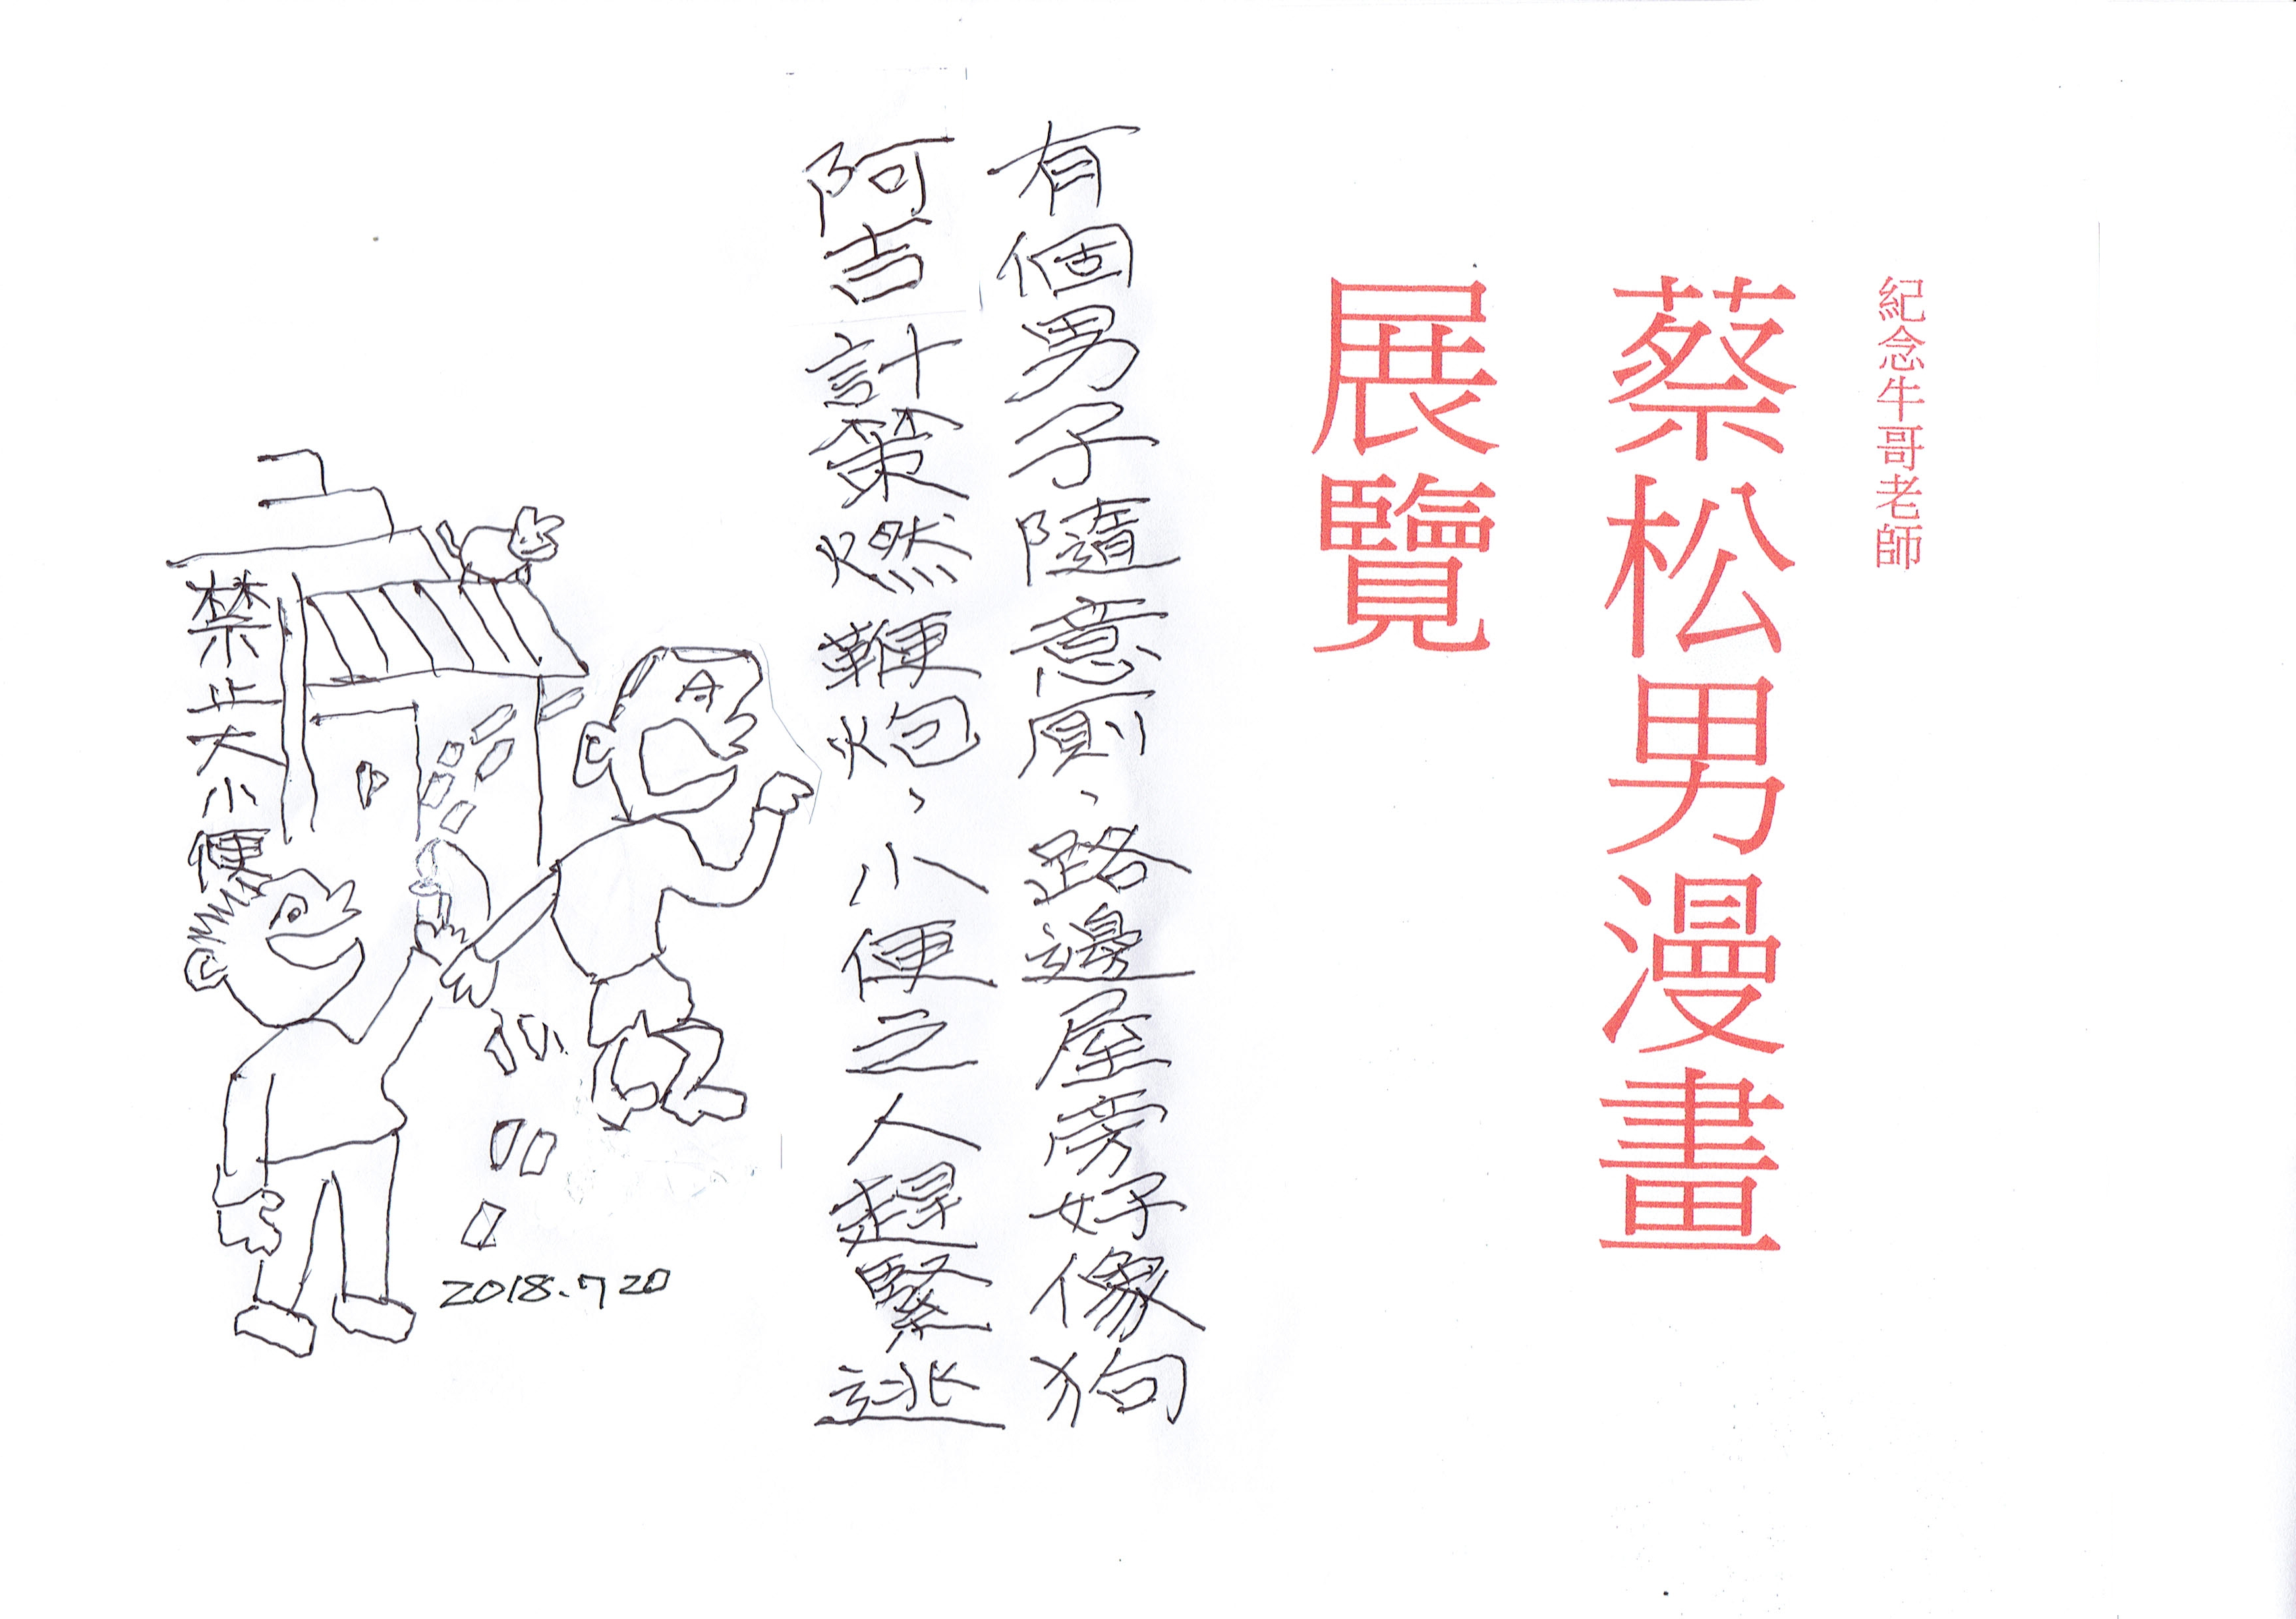 紀念牛哥老師
蔡松男漫畫
展覽
有個男子隨意廁、路邊屋旁好像狗
阿吉計策燃鞭炮、小便之人趕緊逃
禁止大小便
2018.7 20